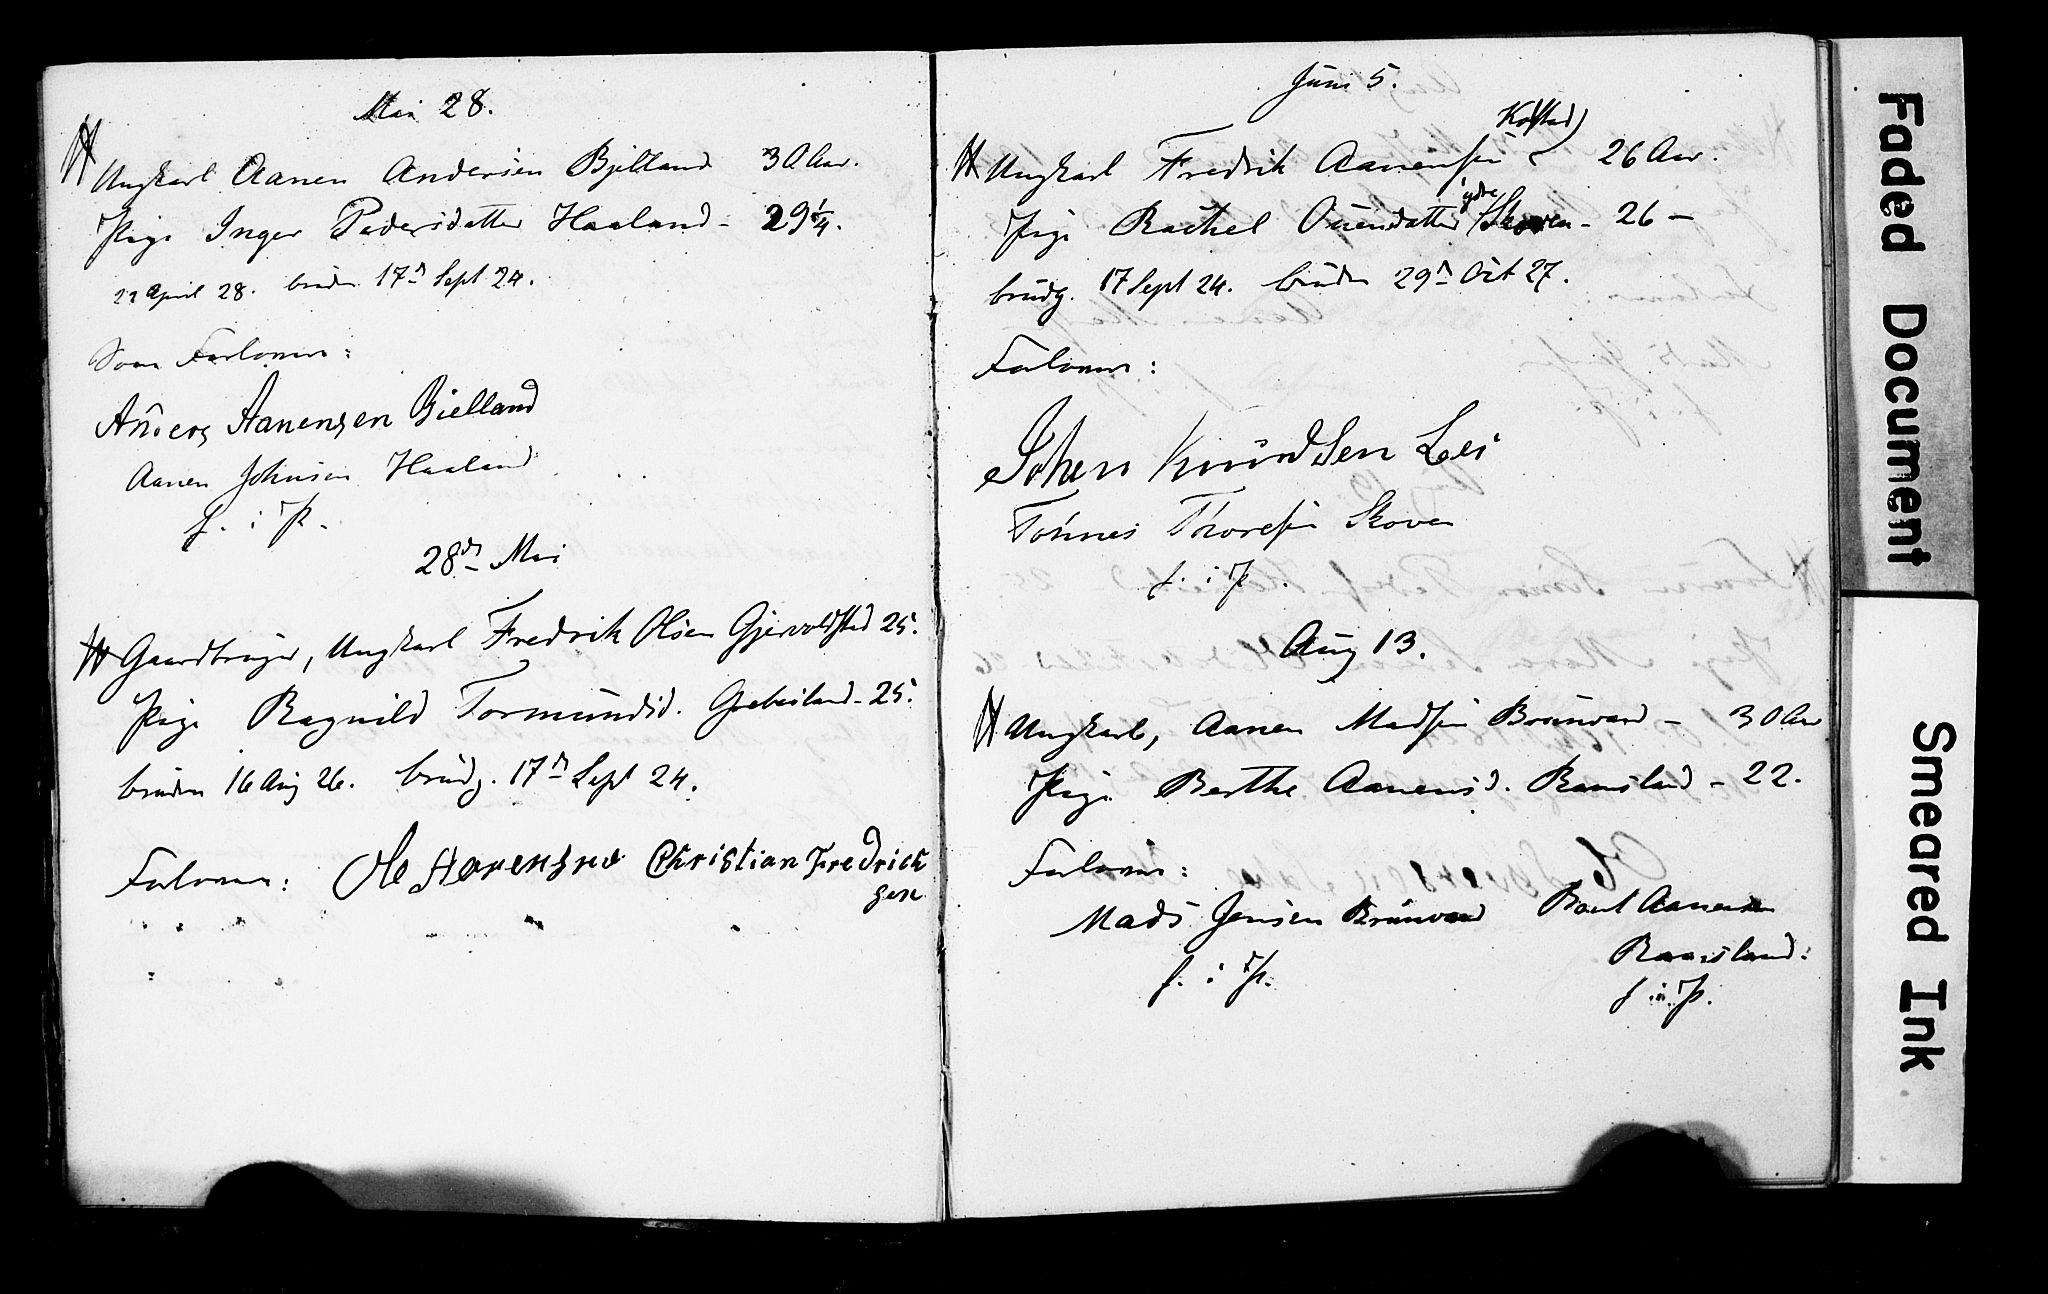 Mai 28.
Ungkarl Aanen Andersen Bjelland 30 Aar.
Pige Inger Pedersdatter Haaland - 29 1/4.
22 April 28. bruden 17de Sept 24.
Som Forlovere:
Anders Aanensen Bielland
Aanen Johnsen Haaland
f. i P.
28de Mai
Gaardbruger, Ungkarl Fredrik Olsen Gjervoldstad 25.
Pige Ragnild Tormundsd. Grebesland - 25.
bruden 16 Aug 26. brudg. 17de Sept 24.
Forlovere: Ole Christian Fredrick
sen
Juni 5.
Kolstad)
Ungkarl Fredrik Aanensen ( 26 Aar.
ydre
Pige Rachel Ouensdatter Skoven - 26 -
brudg. 17 Sept 24. bruden 29de Oct 27.
Forlovere:
Johen Knudsen Lei
Tønnes Thoresen Skoven
f. i P.
Aug 13.
Ungkarl, Aanen Madsen Brunvand - 30 Aar
Pige Berthe Aanensd. Ramsland - 22.
Forlovere:
Mads Jensen Brunvand Boent Aanensen
Ramsland:
f. i P. f. i. P.
Faded Document
Smeared Ink